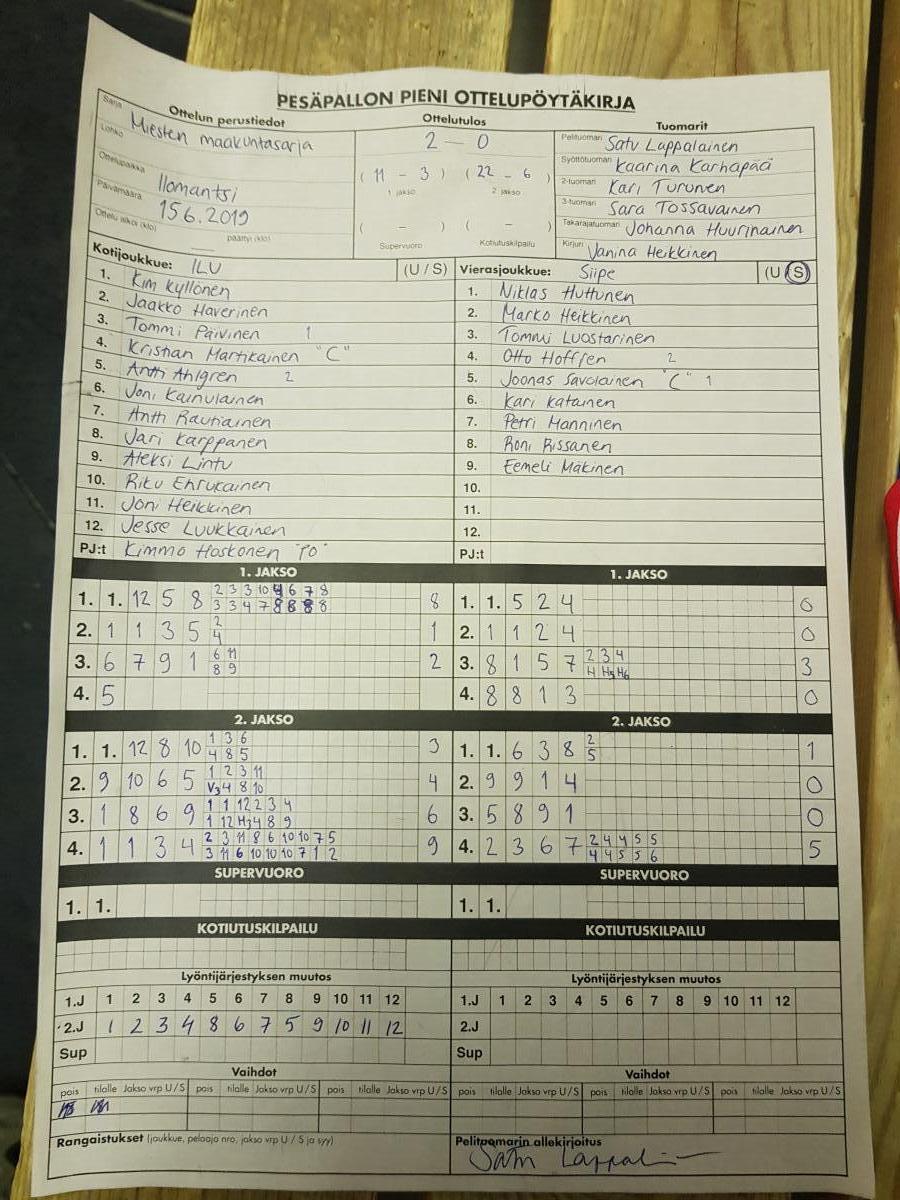 PESÄPALLON PIENI OTTELUPÖYTÄKIRJA
Ottelun perustiedot
Sarja Miesten maakuntasarja
Lohko
Ottelupaikka Ilomantsi
Päivämäärä 15.6.2019
Ottelu alkoi (klo) päättyi (klo)
Ottelutulos
2 – 0
( 11 - 3 ) ( 22 - 6 )
1 jakso 2. jakso
( – ) ( – )
Supervuoro Kotiutuskilpailu
Tuomarit
Pelituomari Satu Lappalainen
Syöttötuomari Kaarina Karhapää
2-tuomari Kari Turunen
3-tuomari Sara Tossavainen
Takarajatuomari Johanna Huurinainen
Kirjuri Janina Heikkinen
Kotijoukkue: ILU (U / S)
1. Kim Kyllönen
2. Jaakko Haverinen
3. Tommi Päivinen 1
4. Kristian Martikainen "C"
5. Antti Ahlgren 2
6. Joni Kainulainen
7. Antti Rautiainen
8. Jari Karppanen
9. Aleksi Lintu
10. Riku Ehrukainen
11. Joni Heikkinen
12. Jesse Luukkainen
PJ:t Kimmo Hoskonen "PO"
Vierasjoukkue: Siipe (U / S)
1. Niklas Huttunen
2. Marko Heikkinen
3. Tommi Luostarinen
4. Otto Hoffren 2
5. Joonas Savolainen "C" 1
6. Kari Katainen
7. Petri Manninen
8. Roni Rissanen
9. Eemeli Mäkinen
10.
11.
12.
PJ:t
1. JAKSO
1. 1. 12 5 8 2 3 3 10 4 6 7 8 8
3 3 4 7 8 8 8 8
2. 1 1 3 5 2 1
4
3. 6 7 9 1 6 11 2
8 9
4. 5
1. JAKSO
1. 1. 5 2 4 0
2. 1 1 2 4 0
3. 8 1 5 7 2 3 4 3
H H5 H6
4. 8 8 1 3 0
2. JAKSO
1. 1. 12 8 10 1 3 6 3
4 8 5
2. 9 10 6 5 1 2 3 11 4
V3 4 8 10
3. 1 8 6 9 1 1 12 2 3 4 6
1 12 H3 4 8 9
4. 1 1 3 4 2 3 11 8 6 10 10 7 5 9
3 11 6 10 10 10 7 1 2
2. JAKSO
1. 1. 6 3 8 2 1
5
2. 9 9 1 4 0
3. 5 8 9 1 0
4. 2 3 6 7 2 4 4 5 5 5
4 4 5 5 6
SUPERVUORO
1. 1.
SUPERVUORO
1. 1.
KOTIUTUSKILPAILU
KOTIUTUSKILPAILU
Lyöntijärjestyksen muutos
1.J 1 2 3 4 5 6 7 8 9 10 11 12
2.J 1 2 3 4 8 6 7 5 9 10 11 12
Sup
Lyöntijärjestyksen muutos
1.J 1 2 3 4 5 6 7 8 9 10 11 12
2.J
Sup
Vaihdot
pois tilalle Jakso vrp U / S pois tilalle Jakso vrp U / S pois tilalle Jakso vrp U / S
Vaihdot
pois tilalle Jakso vrp U / S pois tilalle Jakso vrp U / S pois tilalle Jakso vrp U / S
Rangaistukset (joukkue, pelaaja nro, jakso vrp U / S ja syy)
Pelituomarin allekirjoitus